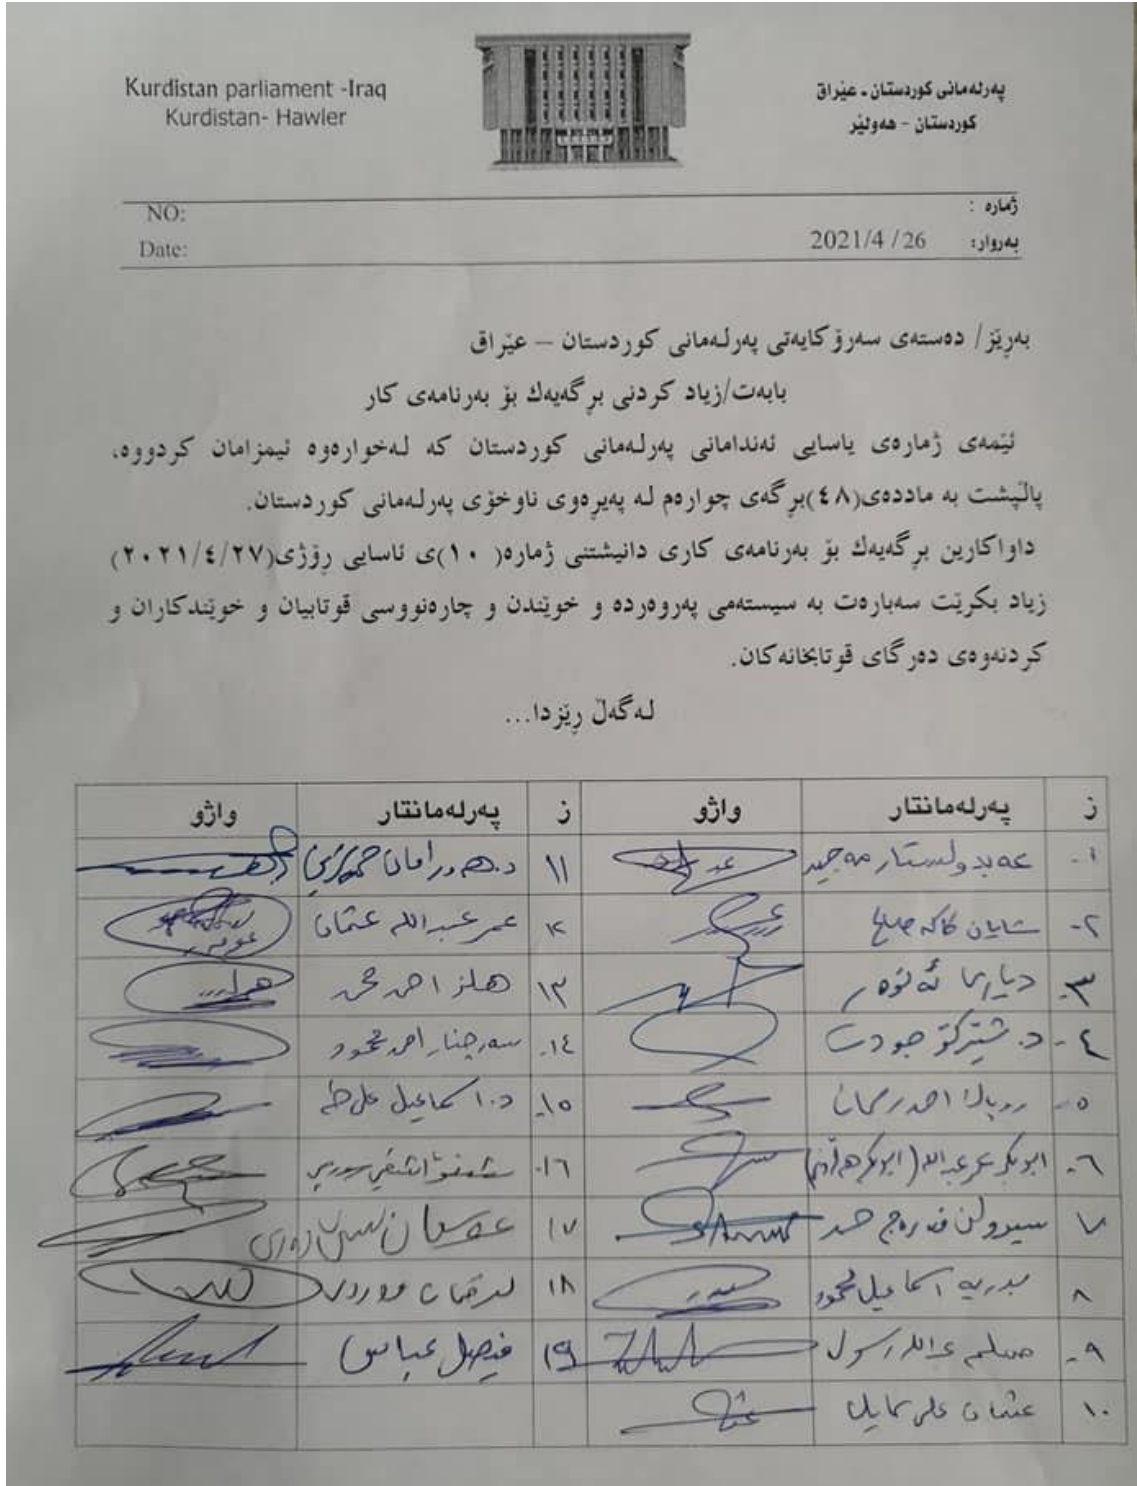 Kurdistan parliament -Iraq
Kurdistan- Hawler
پەرلەمانی كوردستان - عێراق
كوردستان - هەولێر
NO:
ژمارە :
Date:
بەروار: 2021/4 / 26
بەرێز/ دەستەی سەرۆكایەتی پەرلەمانی كوردستان – عێراق
بابەت/زیاد كردنی برگەیەك بۆ بەرنامەی كار
ئێمەی ژمارەی یاسایی ئەندامانی پەرلەمانی كوردستان كە لەخوارەوە ئیمزامان كردووە،
پاڵپشت بە ماددەی(٤٨)برگەی چوارەم لە پەیرەوی ناوخۆی پەرلەمانی كوردستان.
داواكارین برگەیەك بۆ بەرنامەی كاری دانیشتنی ژمارە( ١٠)ی ئاسایی رۆژی(٢٠٢١/٤/٢٧)
زیاد بكرێت سەبارەت بە سیستەمی پەروەردە و خوێندن و چارەنووسی قوتابیان و خوێندكاران و
كردنەوەی دەرگای قوتابخانەكان.
لەگەڵ رێزدا...
ز پەرلەمانتار واژو ز پەرلەمانتار واژو
١- عەبدولستار مەجید ١١ د.هەورامان
٢- شایان كاكە صالح ١٢ عمر عبداللە عثمان
٣- ١٣ هلز احمد محمد
٤- د. شێركۆ جودت ١٤- سەرچنار احمد محمود
٥- ١٥- د. اسماعیل علی طە
٦- ابوبكر عمر عبداللە ١٦-
٧ سیروان فەرەج محمد ١٧
٨ بدریە اسماعیل محمود ١٨ لوقمان
٩- مسلم عبداللە رسول ١٩ فیصل عباس
١٠ عثمان علی